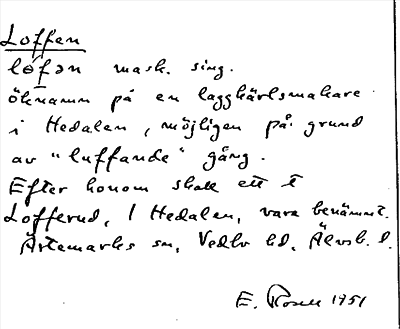 Loffen
lòfən mask. sing.
öknamn på en laggkärlsmakare
i Hedalen, möjligen på grund
av "luffande" gång.
Efter honom skall ett t
Lofferud, i Hedalen, vara benämnt.
Ärtemarks sn, Vedbo hd, Älvsb. l.
E. Rosell 1951